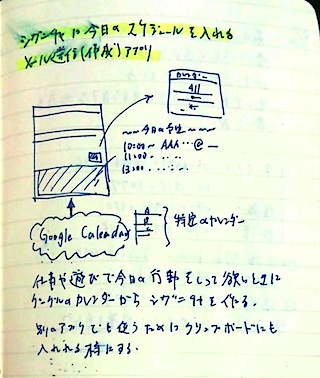 シグネチャに今日のスケジュールを入れる
メール送信(作成)アプリ
カレンダー
~~今日の予定~~
10:00~ AAA…@
11:00~
13:00~
Google Calendar
A
B
特定のカレンダー
仕事や遊びで今日の行動をしって欲しいときに
グーグルのカレンダーから シグネチャを作る。
別のアプリでも使うためにクリップボードにも
入れれる様にする。